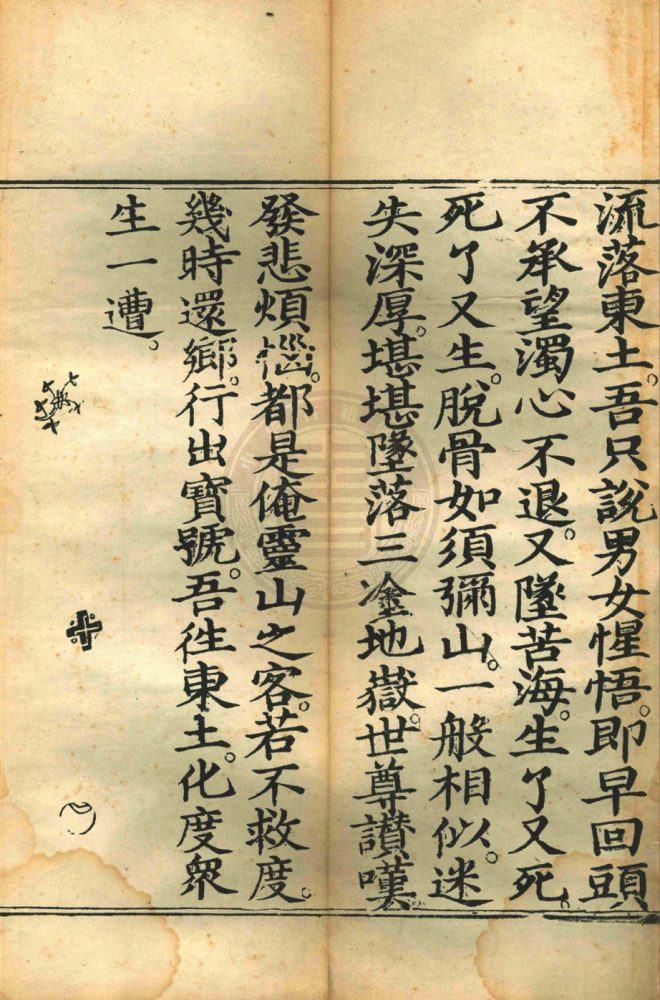 流落東土。吾只說男女惺悟。即早回頭
不承望濁心不退。又墜苦海。生了又死。
死了又生。脫骨如須彌山。一般相似。迷
失深厚。堪堪墜落三塗地嶽。世尊讃嘆
發悲煩惱。都是俺靈山之客。若不救度。
幾時還鄉。行出寳號。吾徃東土。化度衆
生一遭。